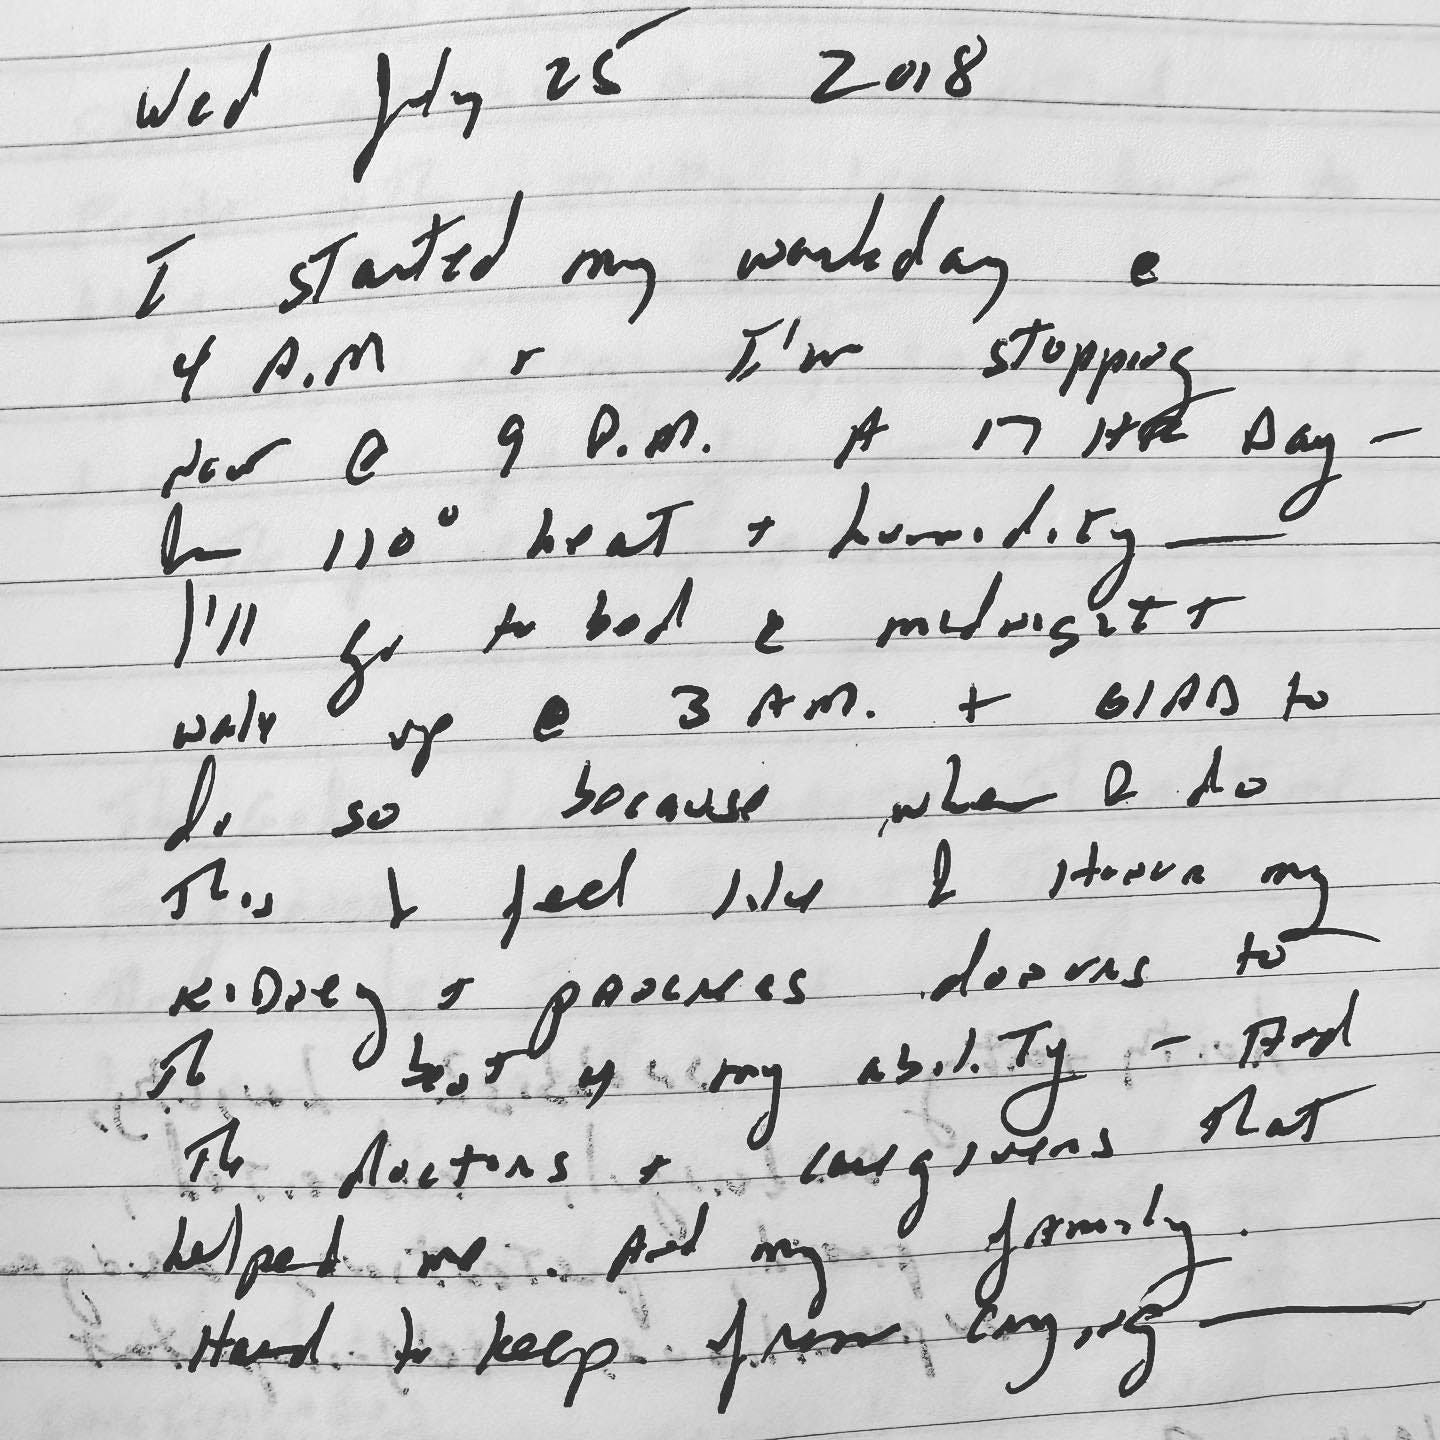 Wed July 25 2018
I started my workday @
4 A.M + I'm stopping
now @ 9 P.M. A 17 HR Day –
In 110° heat + humidity —
I'll go to bed @ midnight +
wake up @ 3 AM. + GLAD to
do so because when I do
This I feel like I Honor my
KIDney + pancreas donors to
The best of my ability – And
The doctors + caregivers That
helped me. And my family.
Hard to keep from crying —